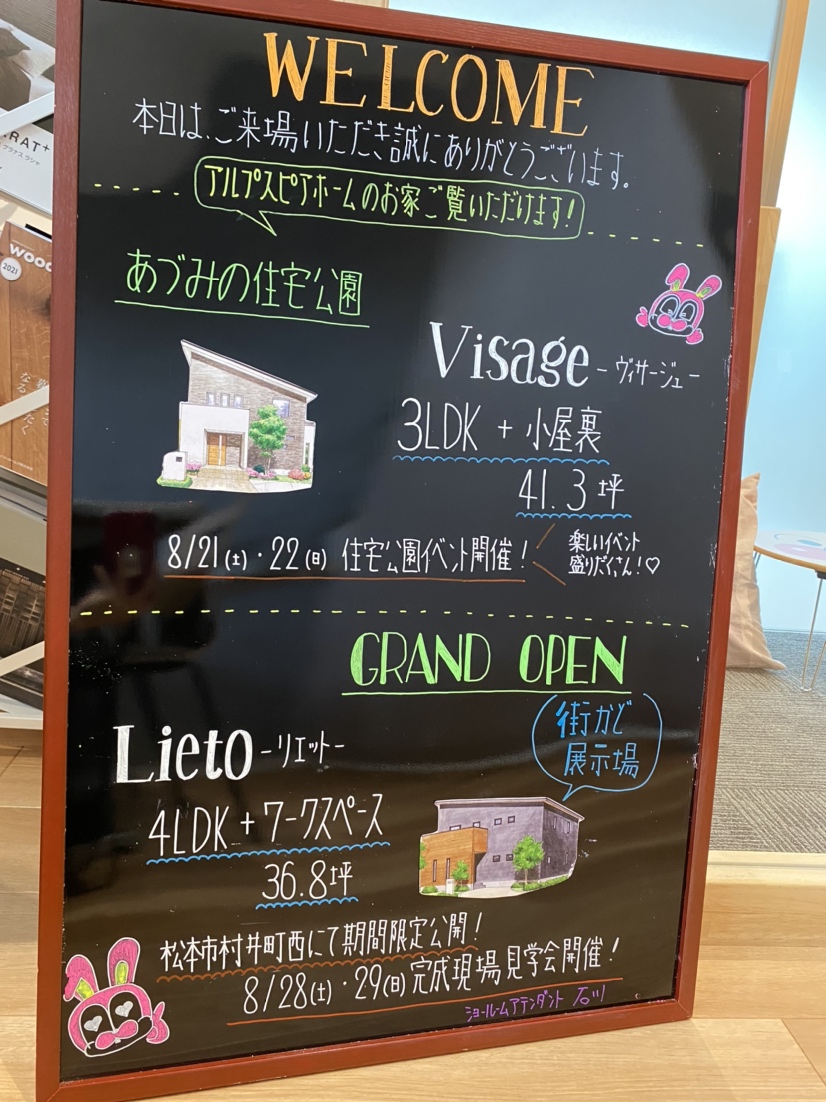 WELCOME
本日は、ご来場いただき誠にありがとうございます。
アルプスピアホームのお家ご覧いただけます!
あづみの住宅公園
Visage -ヴィサージュ-
3LDK + 小屋裏
41.3坪
8/21(土)・22(日) 住宅公園イベント開催!
楽しいイベント
盛りだくさん!♡
GRAND OPEN
街かど
展示場
Lieto -リエット-
4LDK+ワークスペース
36.8坪
松本市村井町西にて期間限定公開!
8/28(土)・29(日)完成現場見学会開催!
ショールームアテンダント 石川
RAT+
WOOD
2021